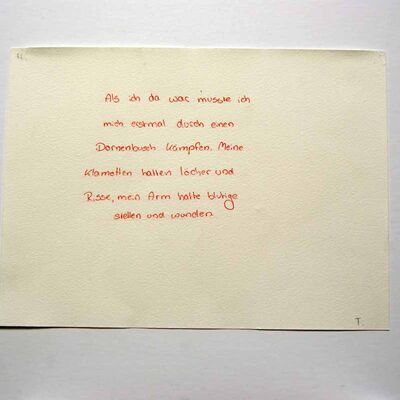 Als ich da war musste ich
mich erstmal durch einen
Dornenbusch kämpfen. Meine
Klamotten hatten löcher und
Risse, mein Arm hatte blutige
stellen und wunden
T.